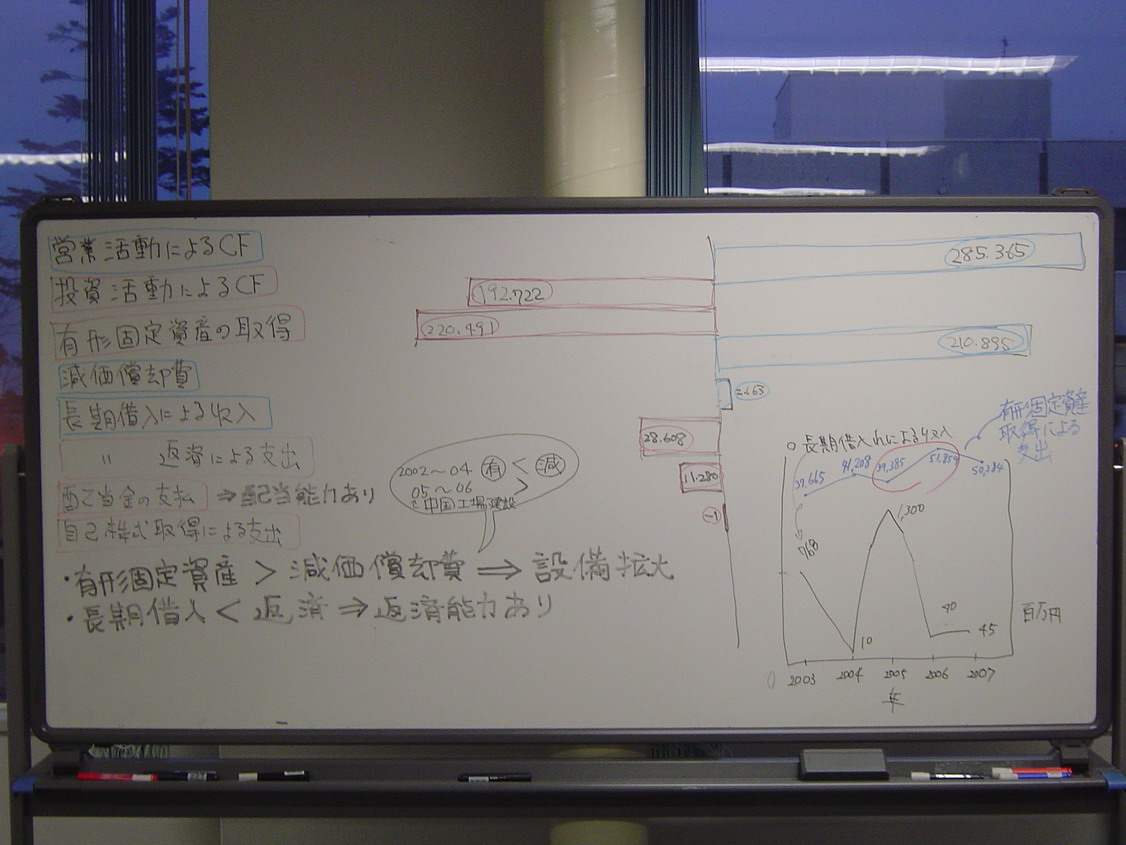 営業活動によるCF
285.365
投資活動によるCF
192.722
有形固定資産の取得
220.491
210.895
減価償却費
長期借入による収入
28.608
〃 返済による支出
11.280
配当金の支払 ⇒配当能力あり
自己株式取得による支出
-1
2002〜04 有 < 減
05〜06 >
中国工場建設
・有形固定資産 > 減価償却費 ⇒ 設備拡大
・長期借入 < 返済 ⇒ 返済能力あり
○長期借入れによる収入
有形固定資産
取得による
支出
37,665
41,208
39,385
51,854
50,384
768
1,300
10
40
45
百万円
0 2003 2004 2005 2006 2007
年